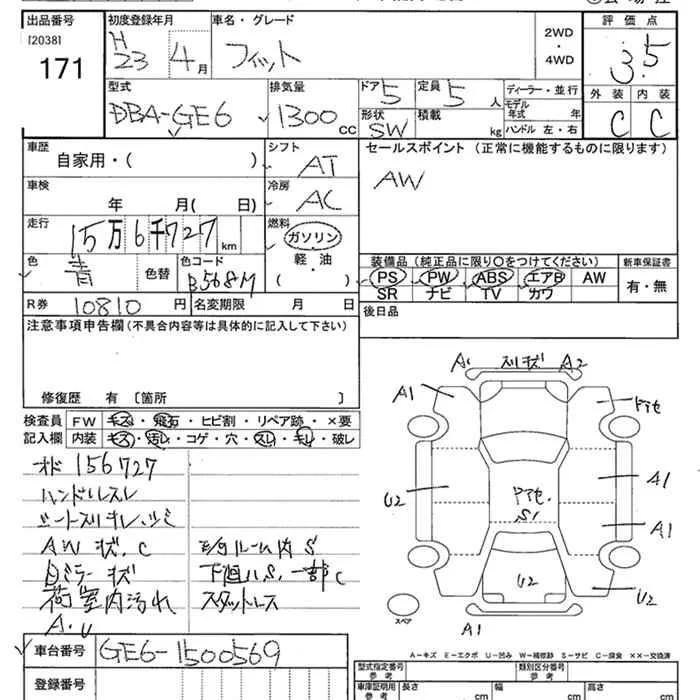 出品番号 初度登録年月 車名・グレード 2WD ・ 4WD 評価点
[2038]
171
H23 4月 フィット 3.5
型式 排気量 ドア 5 定員 5人 ディーラー・並行 外装 内装
DBA-GE6 1300cc 形状 SW 積載 kg モデル年式 年 C C
ハンドル 左・右
車歴 自家用・( ) シフト AT セールスポイント (正常に機能するものに限ります)
車検 年 月( 日) 冷房 AC AW
走行 15万6千727km 燃料 ガソリン・軽油 ( )
色 青 色替 色コード B568M
装備品 (純正品に限り○をつけてください) 新車保証書
PS PW ABS エアB AW 有・無
SR ナビ TV カワ
R券 10810円 名変期限 月 日 後日品
注意事項申告欄 (不具合内容等は具体的に記入して下さい)
修復歴 有 〔箇所 〕
検査員 FW キズ・飛石・ヒビ割・リペア跡・×要
記入欄 内装 キズ・汚レ・コゲ・穴・スレ・キレ・破レ
オド 156727
ハンドルスレ
シートスレ キレ.シミ
AW キズ.C
ミラー キズ
荷室内汚れ
A.U
ルーム内 S
下廻りS.一部C
スタットレス
A1 スリキズ A2
A1
A1
U2
S1
A1
U2
U2
A1
スペア
A-キズ E-エクボ U-凹み W-補修跡 S-サビ C-腐食 ××-交換済
車台番号 GE6-1500569
登録番号
型式指定番号 参考 類別区分番号 参考
車庫証明用 参考 長さ cm 幅 cm 高さ cm